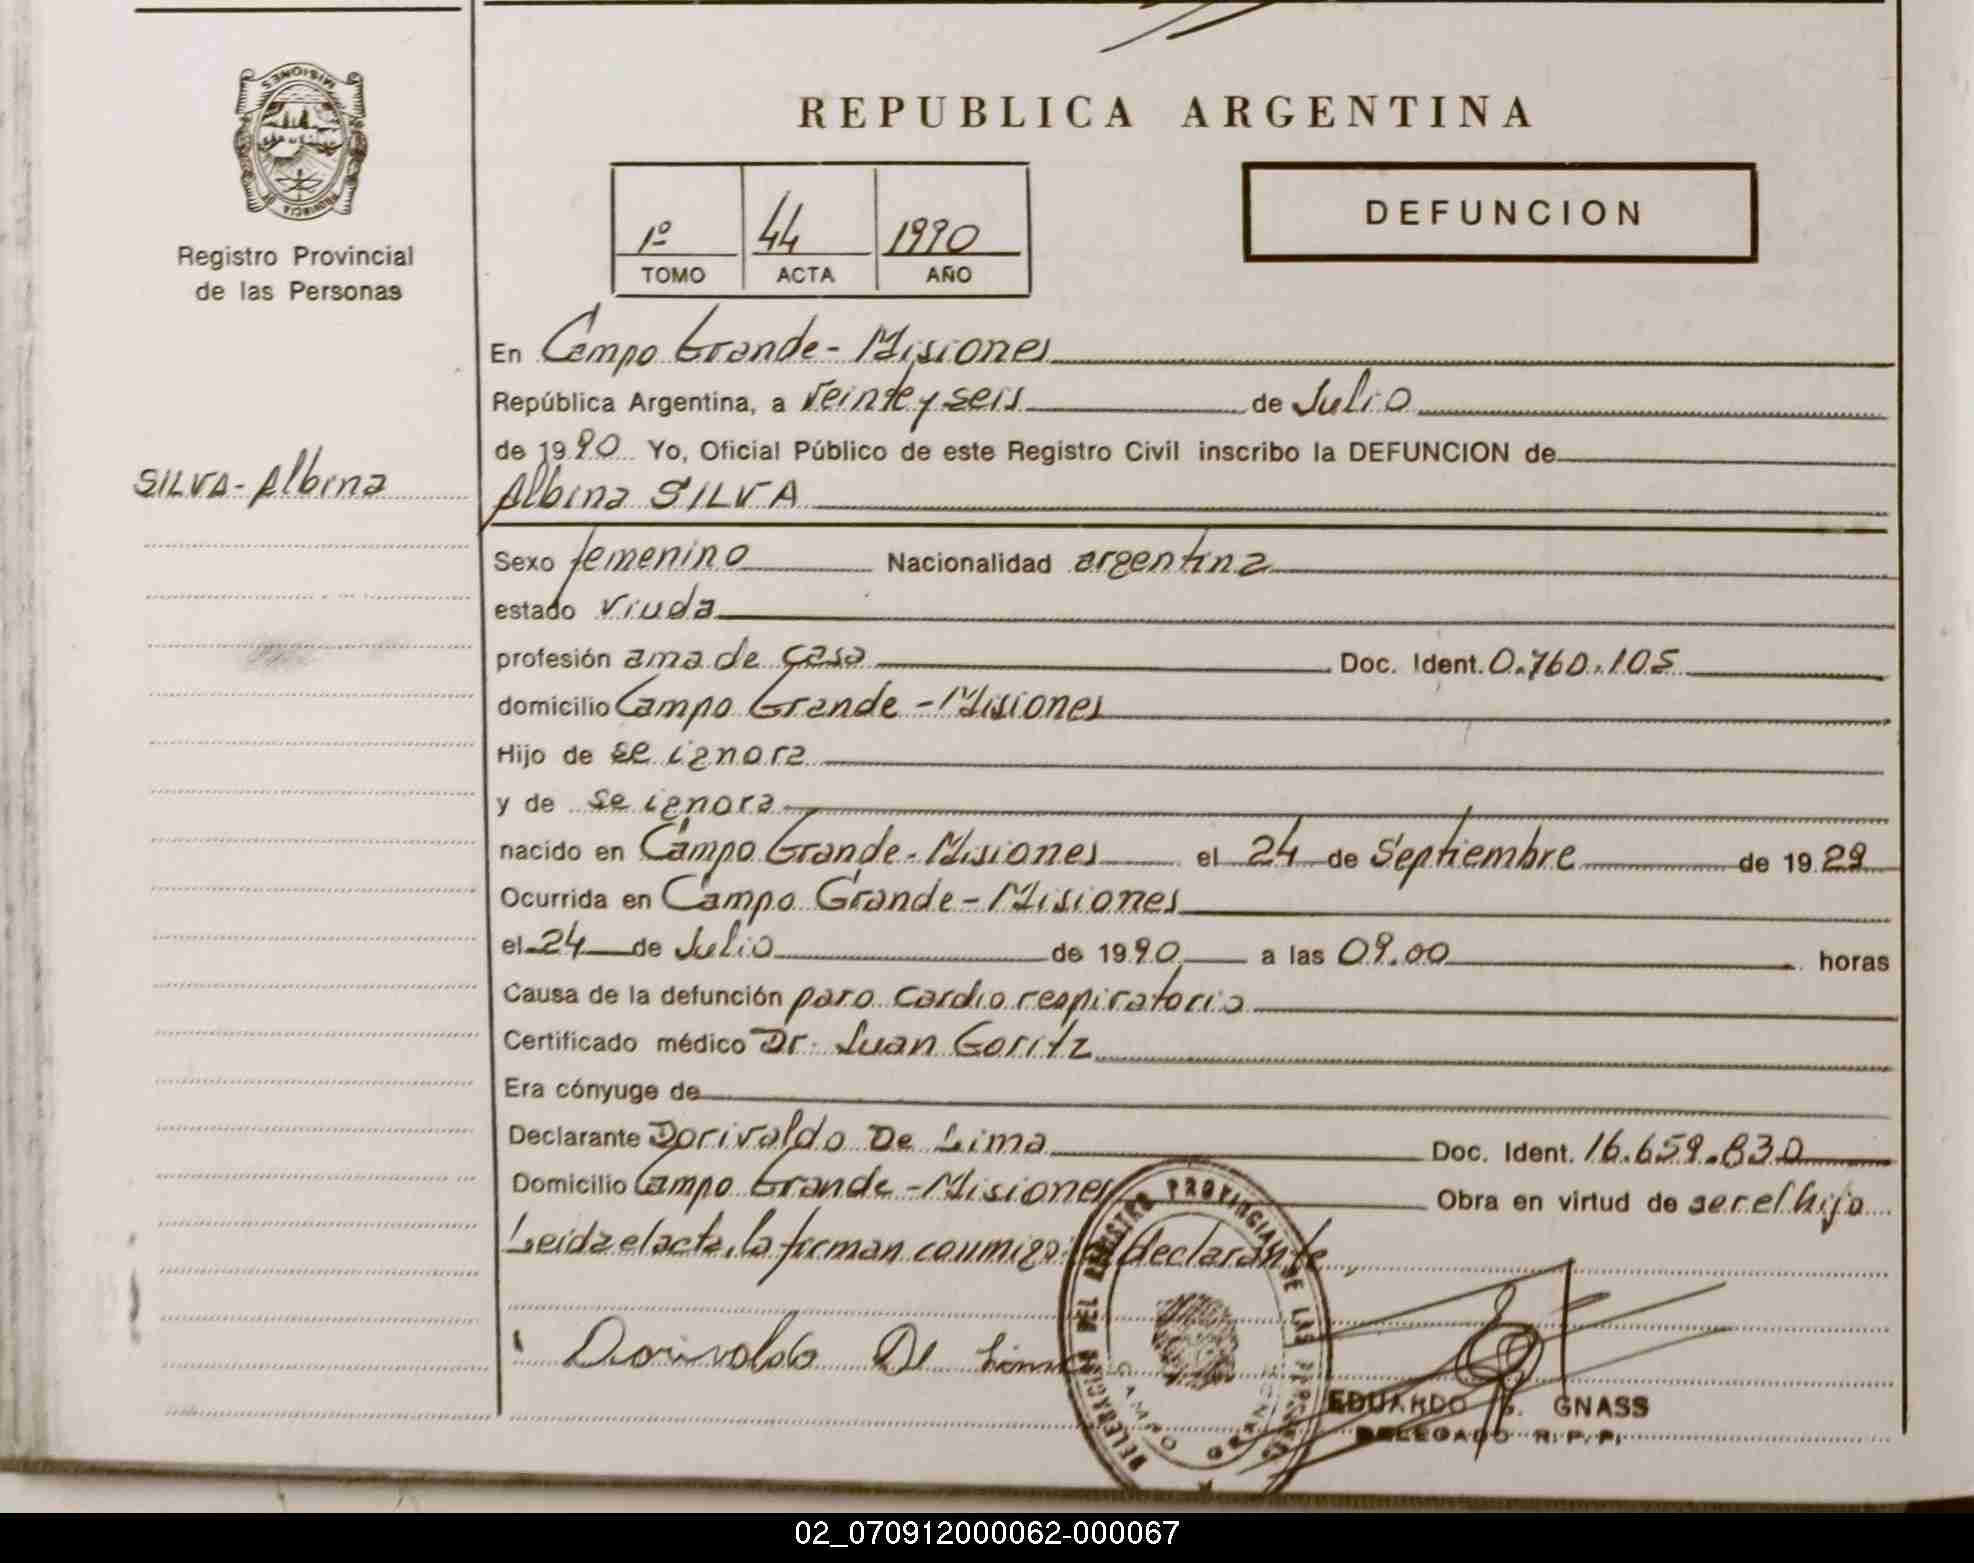 MISIONES
PROVINCIA DE
Registro Provincial
de las Personas
SILVA - Albina
REPUBLICA ARGENTINA
1º 44 1990
TOMO ACTA AÑO
DEFUNCION
En Campo Grande - Misiones
República Argentina, a Veinte y seis de Julio
de 1990 Yo, Oficial Público de este Registro Civil inscribo la DEFUNCION de
Albina SILVA
Sexo femenino Nacionalidad argentina
estado viuda
profesión ama de casa Doc. Ident. 0.760.105
domicilio Campo Grande - Misiones
Hijo de se ignora
y de se ignora
nacido en Campo Grande - Misiones el 24 de Septiembre de 1929
Ocurrida en Campo Grande - Misiones
el 24 de Julio de 1990 a las 09.00 horas
Causa de la defunción paro cardio respiratorio
Certificado médico Dr. Juan Goritz
Era cónyuge de
Declarante Dorivaldo De Lima Doc. Ident. 16.659.830
Domicilio Campo Grande - Misiones Obra en virtud de ser el hijo
Leida el acta, la firman conmigo declarante,
Dorivaldo De Lima
DELEGACION DEL REGISTRO PROVINCIAL DE LAS PERSONAS
CAMPO GRANDE
EDUARDO G. GNASS
DELEGADO R. P. P.
02_070912000062-000067